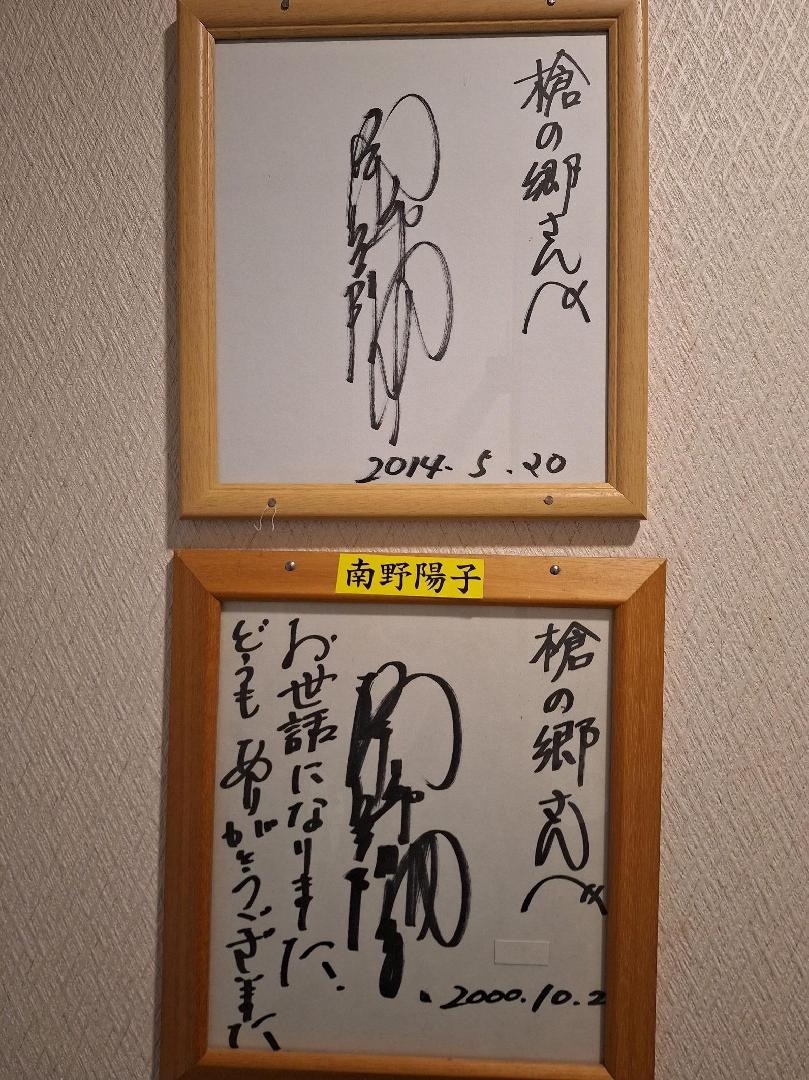 槍の郷さんへ
南野陽子
2014.5.20
南野陽子
槍の郷さんへ
南野陽子
お世話になりました.
どうもありがとうございました
2000.10.2